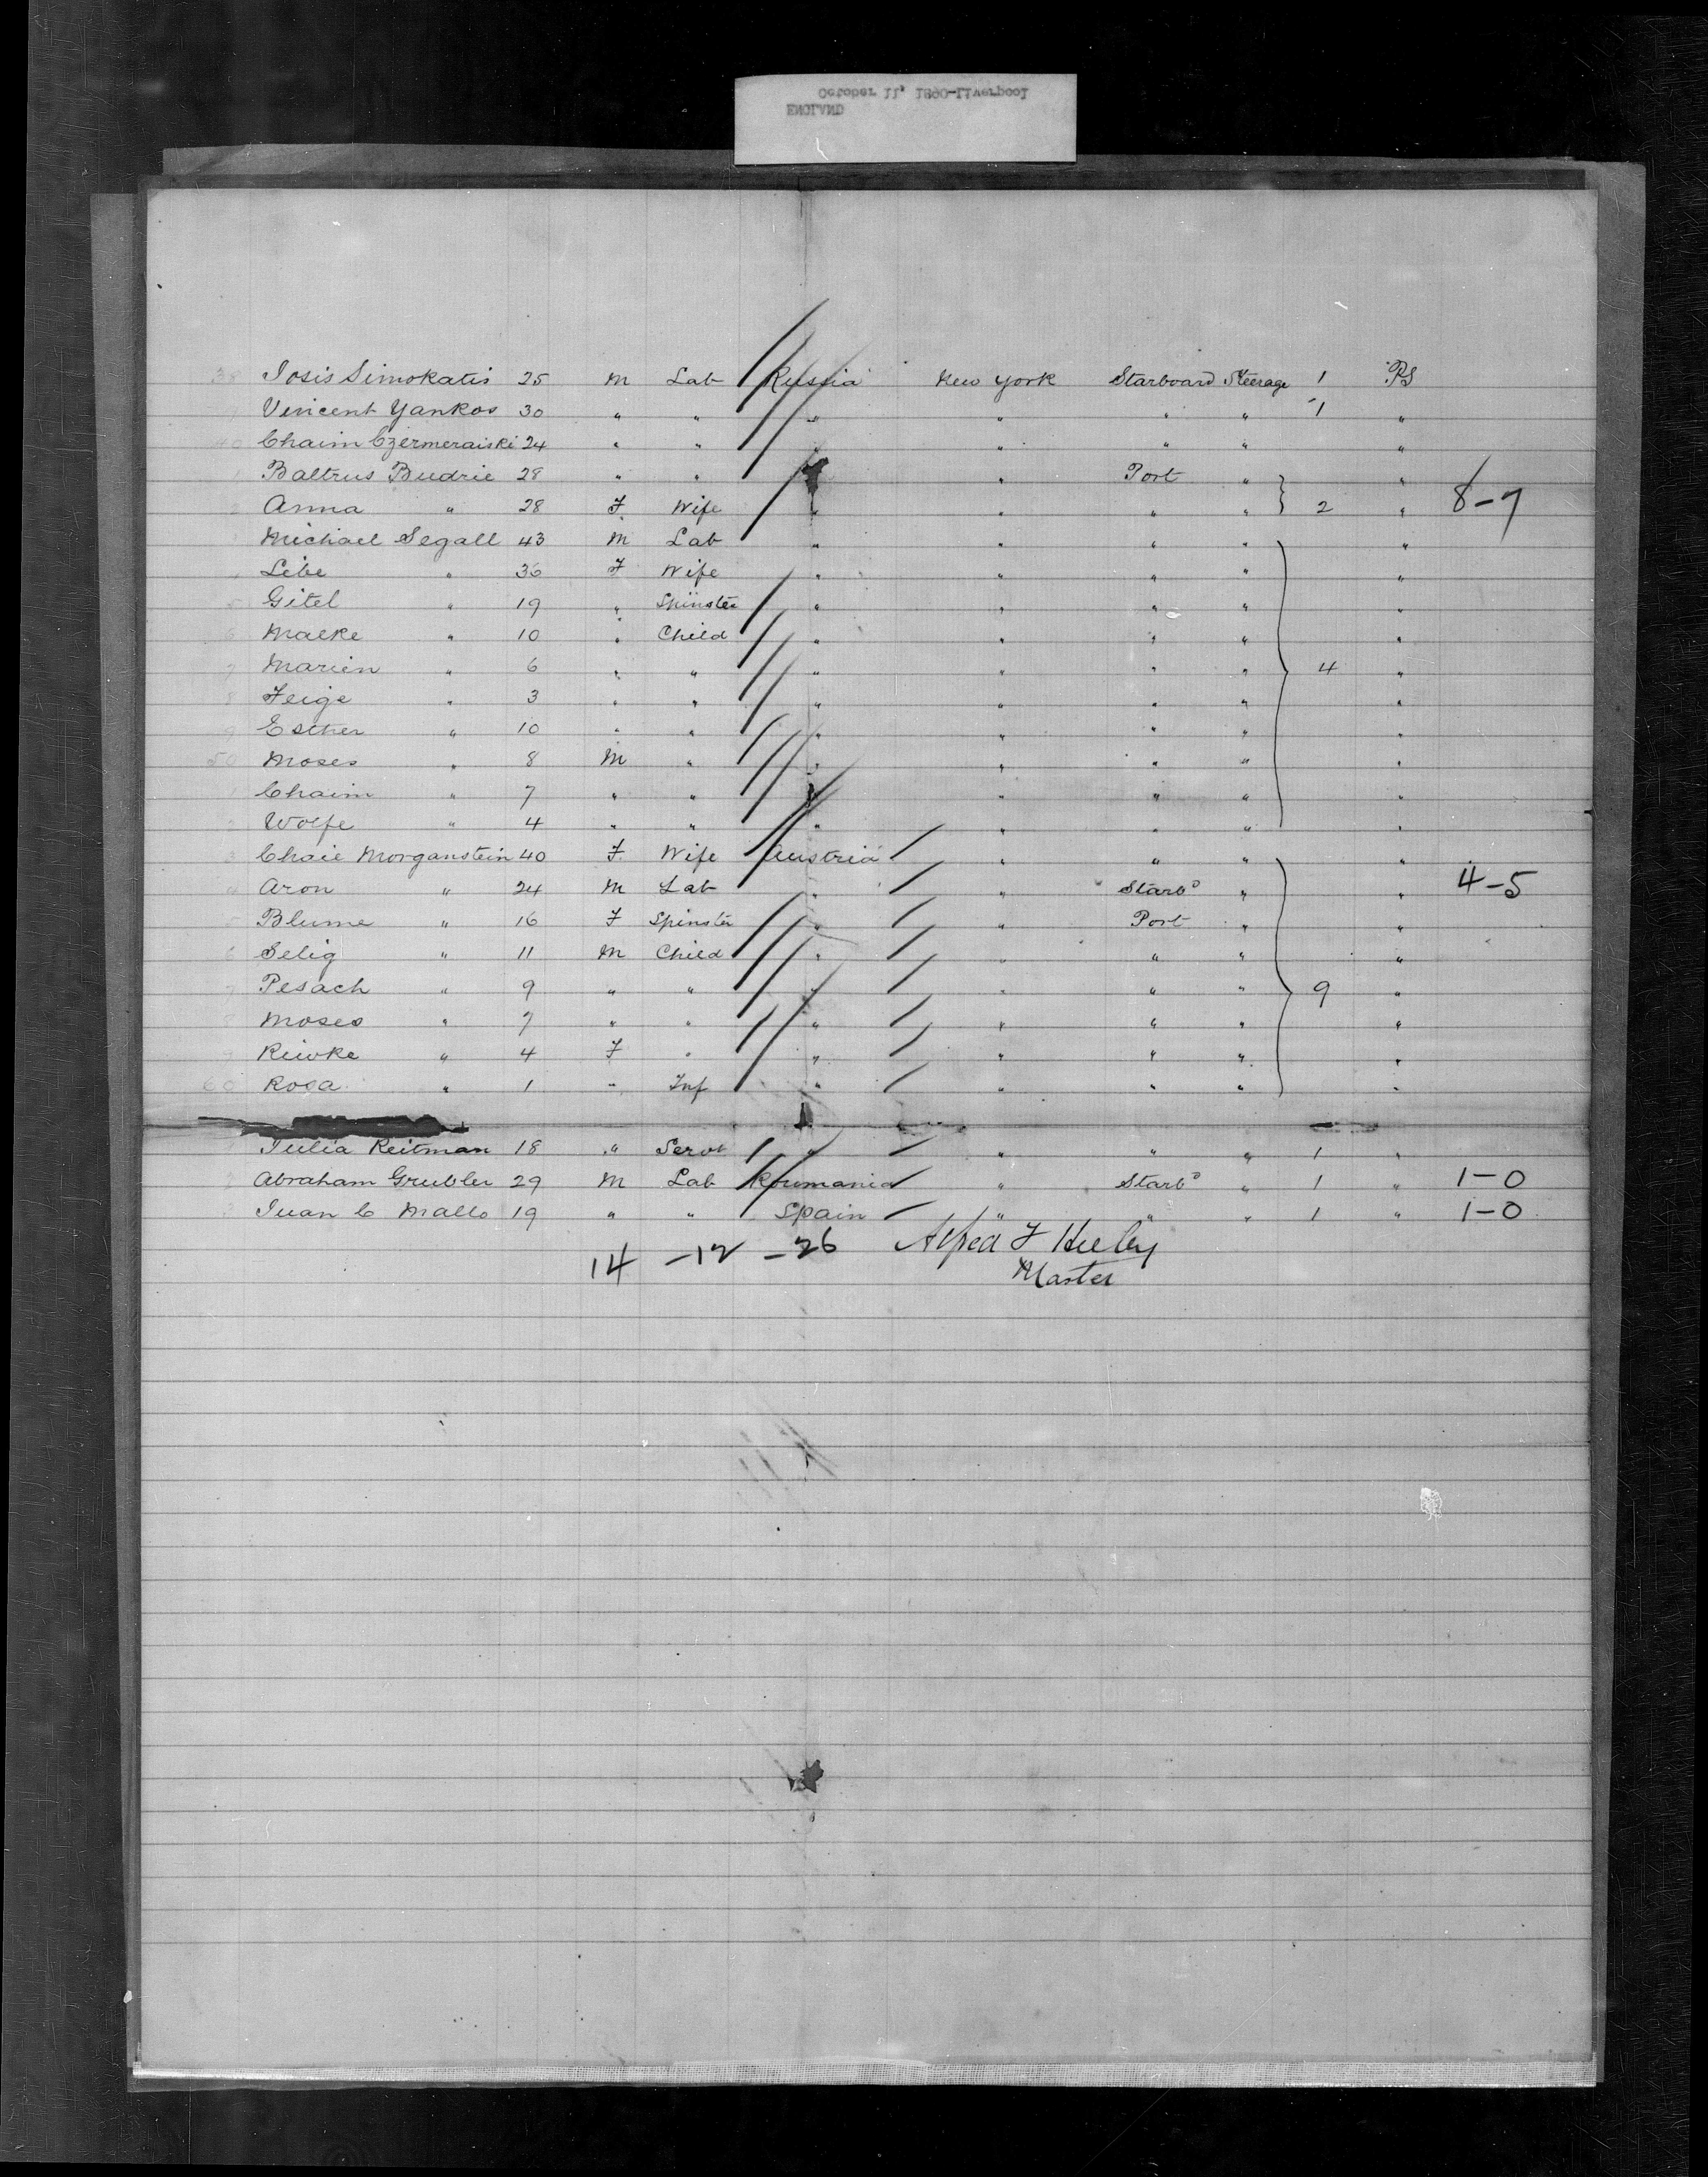 October 11, 1890-Liverpool
ENGLAND
38 Josis Simokatis 25 M Lab Russia New York Starboard Steerage 1 PS
Vincent Yankos 30 " " " " " " 1 "
40 Chaim Czermeraiski 24 " " " " " " "
1 Baltrus Budrie 28 " " " Port " "
2 Anna " 28 F. Wife " " " " 2 " 8-7
Michael Segall 43 M Lab " " " " "
Libe " 36 F Wife " " " " "
5 Gitel " 19 " Spinster " " " " "
6 Malke " 10 " Child " " " " "
7 Marien " 6 " " " " " " 4 "
8 Feige " 3 " " " " " " "
9 Esther " 10 " " " " " " "
50 Moses " 8 M " " " " " "
1 Chaim " 7 " " " " " " "
2 Wolfe " 4 " " " " " " "
3 Chaie Morganstein 40 F. Wife Austria " " " "
4 Aron " 24 M Lab " " Starbd " " 4-5
5 Blume " 16 F Spinster " " Port " "
6 Selig " 11 M Child " " " " "
7 Pesach " 9 " " " " " " 9 "
8 Moses " 7 " " " " " " "
9 Riwke " 4 F " " " " " "
60 Rosa " 1 " Inf " " " " "
Julia Reitman 18 " Servt " " " " 1 "
Abraham Grubler 29 M Lab Roumania " Starbd " 1 " 1-0
Juan C Mallo 19 " " Spain " " " 1 " 1-0
14 -12 -26 Alfred F
Master